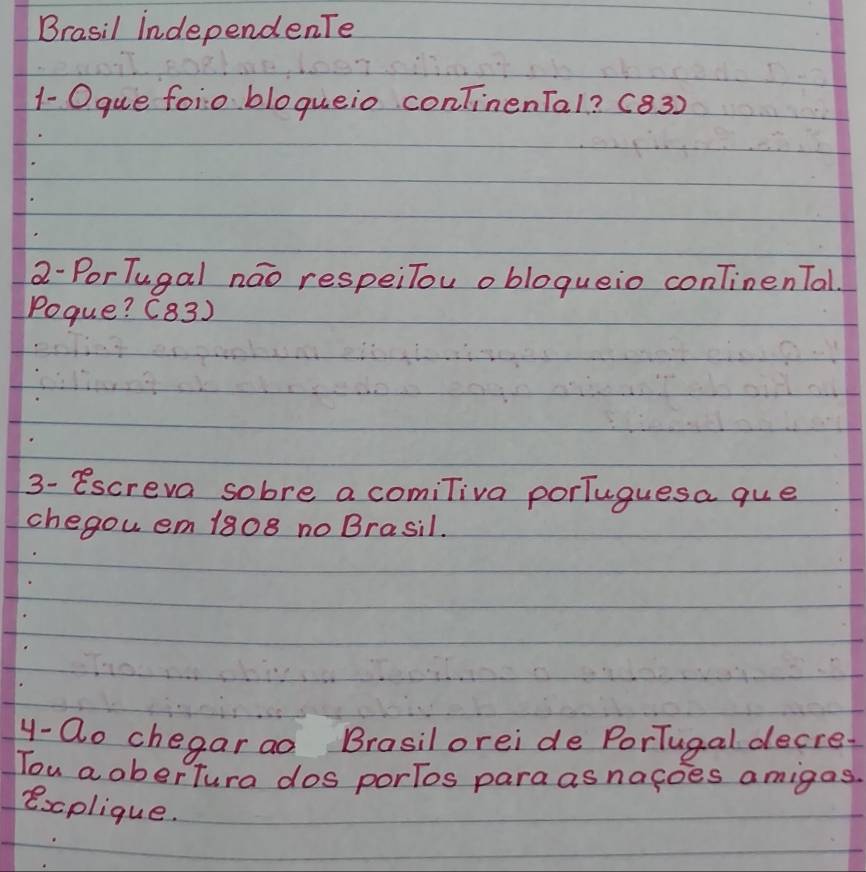 Brasil independente
1- O que foi o bloqueio continental? (83)
2- Portugal não respeitou o bloqueio continental.
Poque? (83)
3- Escreva sobre a comitiva portuguesa que
chegou em 1808 no Brasil.
4- Ao chegar ao Brasil o rei de Portugal decre-
tou a abertura dos portos para as nações amigas.
Explique.